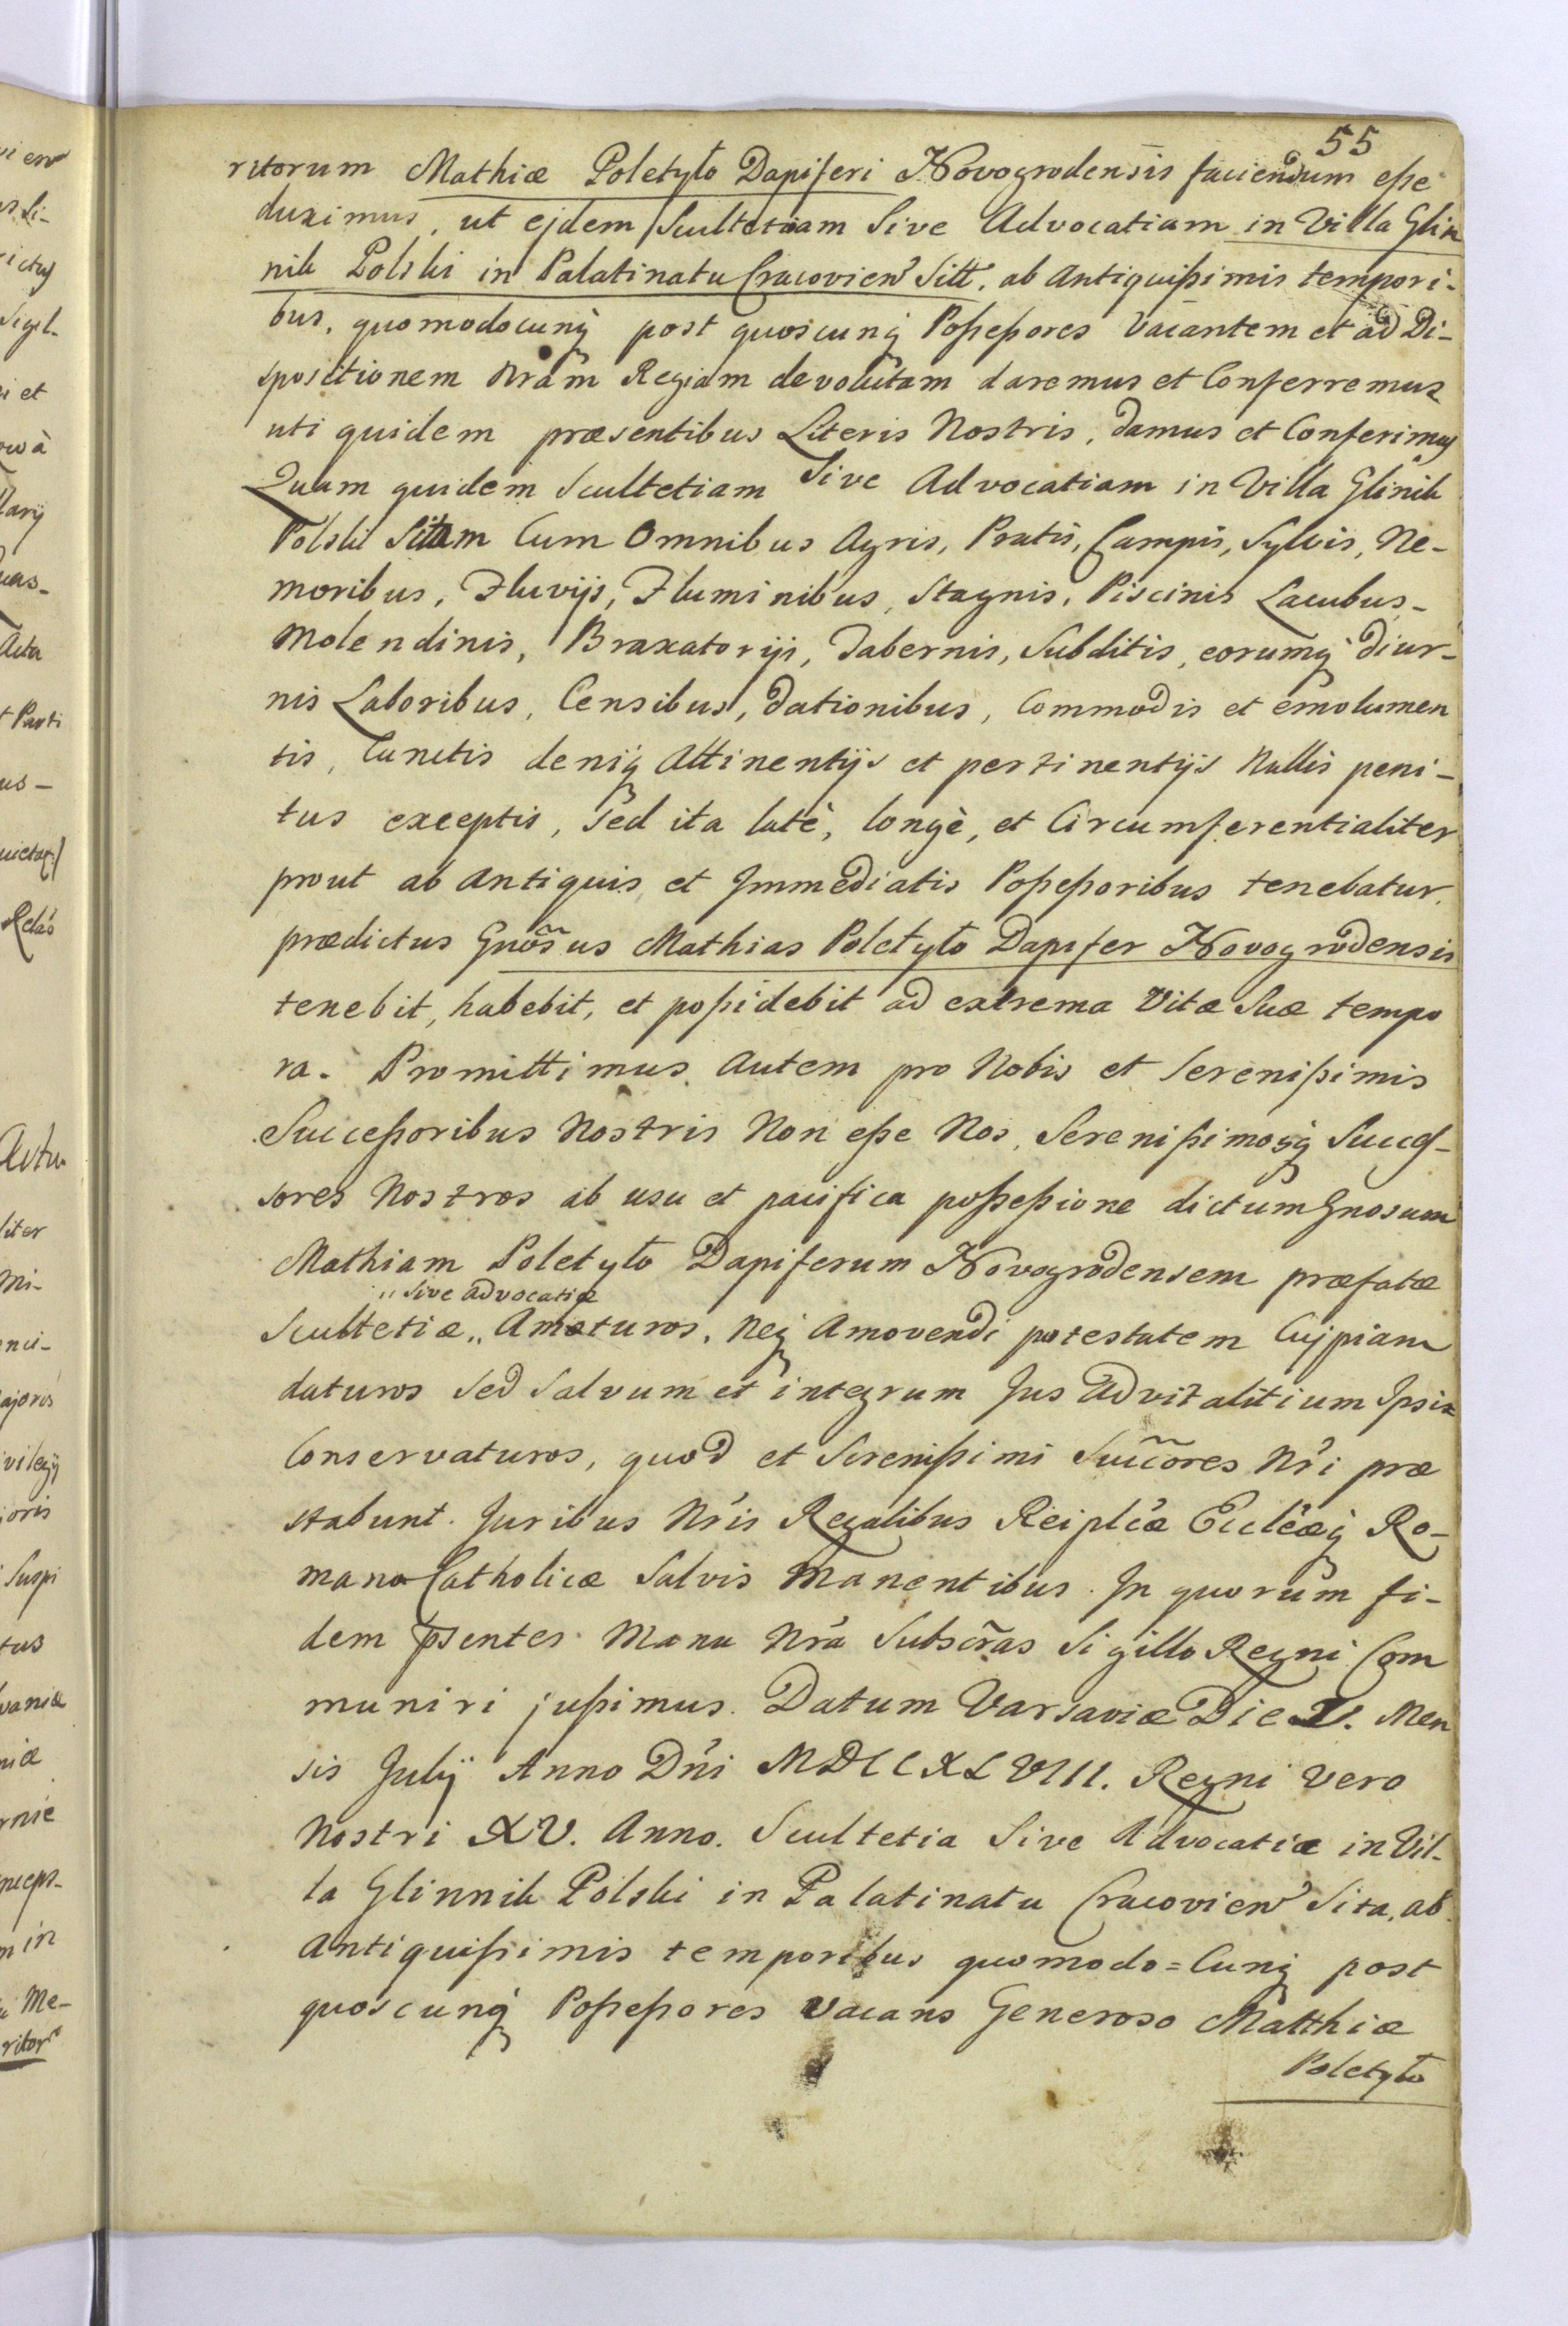 55
ritorum Mathiæ Poletyło Dapiferi Novogrodensis faciendum eße
duximus, ut ejdem Scultetiam Sive Advocatiam in Villa Glin
nik Polski in Palatinatu Cracovien Sitt. ab Antiquißimis tempori-
bus, quomodocunq post quoscunq Poßeßores Vacantem et ad Di-
spositionem Nram Regiam devolutam daremus et Conferremus
uti quidem præsentibus Literis Nostris, damus et Conferimus
Quam quidem Scultetiam Sive Advocatiam in Villa Glinik
Polski Sitam Cum Omnibus Agris, Pratis, Campis, Sylvis, Ne-
moribus, Fluvijs, Fluminibus, Stagnis, Piscinis Lacubus-
Molendinis, Braxatorijs, Tabernis, Subditis, eorumq diur-
nis Laboribus, Censibus, dationibus, Commodis et emolumen
tis, Cunctis deniq Attinentijs et pertinentijs Nullis peni-
tus exceptis, sed ita latè, longè, et Circumferentialiter
prout ab Antiquis et Immediatis Poßeßoribus tenebatur.
prædictus Gnosus Mathias Poletyło Dapifer Novogrodensis
tenebit, habebit, et poßidebit ad extrema Vitæ Suæ tempo
ra. Promittimus Autem pro Nobis et Serenißimis
Succeßoribus Nostris Non eße Nos, Serenißimosq Succes-
sores Nostros ab usu et pacifica poßeßione dictum Gnosum
Mathiam Poletyło Dapiferum Novogrodensem præfatæ
" Sive Advocatiæ
Scultetiæ " Amoturos, Neq Amovendi potestatem Cujpiam
daturos Sed Salvum et integrum Jus Advitalitium Ipsi
Conservaturos, quod et Serenißimi Succores Nri præ
stabunt. Juribus Nris Regalibus Reiplcæ Eccleæq Ro-
mano Catholicæ Salvis Manentibus. In quorum fi-
dem psentes Manu Nra Subscras Sigillo Regni Com
muniri jußimus. Datum Varsaviæ Die V. Men
sis Julij Anno Dni MDCCXLVIII. Regni Vero
Nostri XV. Anno. Scultetia Sive Advocatiæ in Vil-
la Glinnik Polski in Palatinatu Cracovien Sita, ab
Antiquißimis temporibus quomodo=Cunq post
quoscunq Poßeßores Vacans Generoso Matthiæ
Poletyło